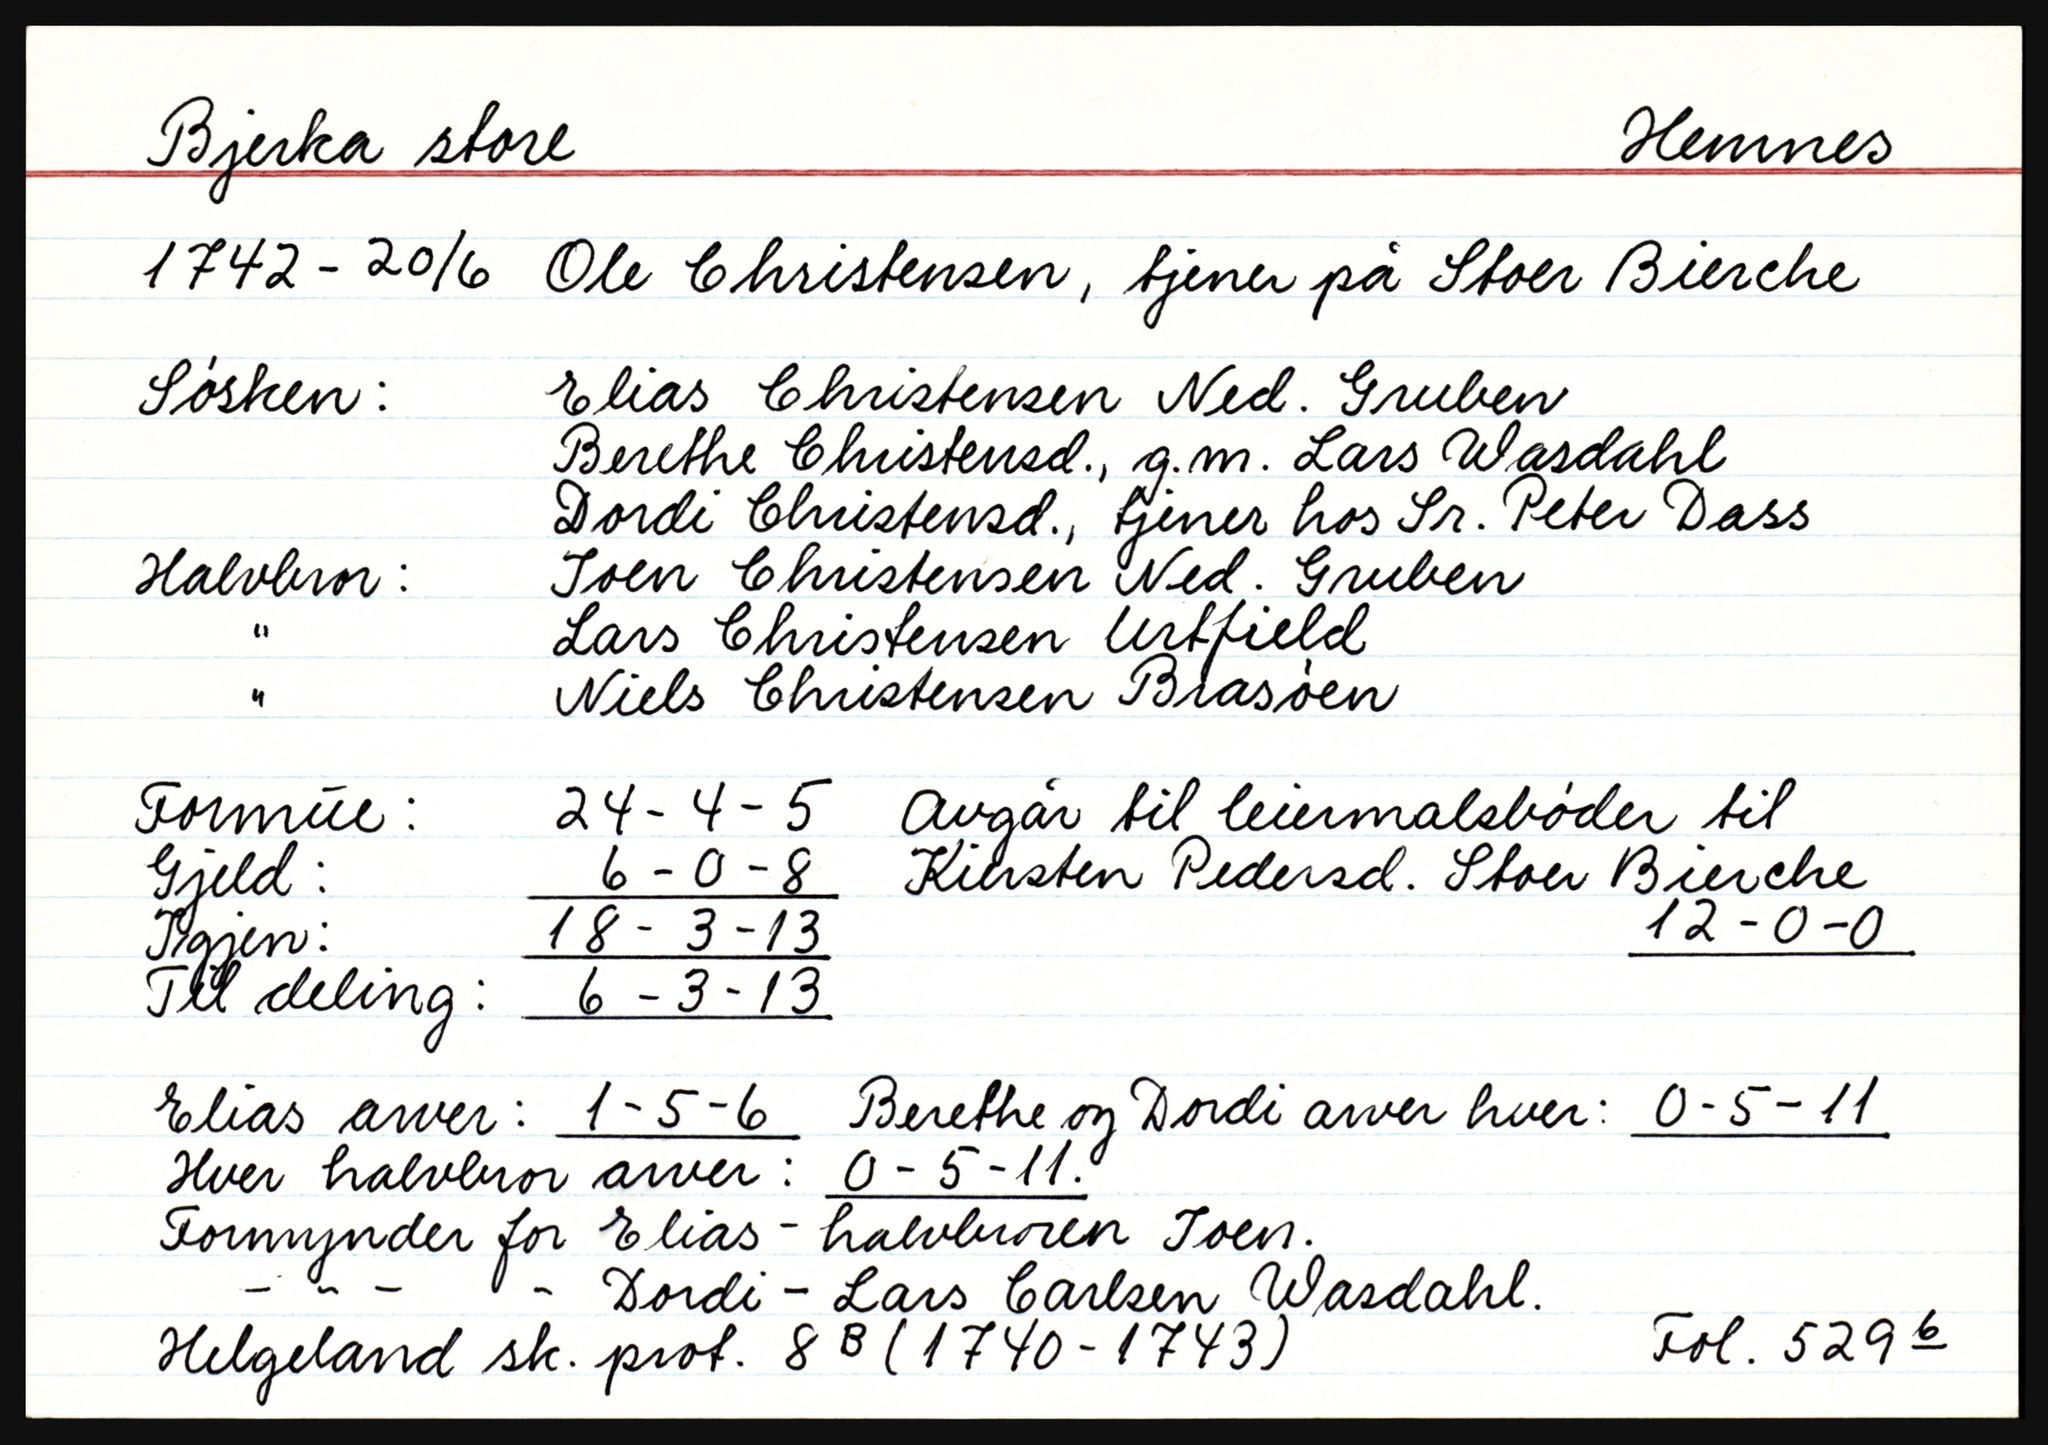 Bjerka store Hemnes
1742 - 20/6 Ole Christensen, tjener på Stoer Bierche
Sósken: Elias Christensen Ned. Gruben
Berethe Christensd., g.m. Lars Wasdahl
Dordi Christensd., tjener hos Sr. Peter Dass
Halvbror: Joen Christensen Ned. Gruben
" Lars Christensen Urtfield
" Niels Christensen Brasóen
Formúe: 24 - 4 - 5 Avgår til leiermalsbóder til
Gjeld: 6 - 0 - 8 Kiersten Pedersd. Stoer Bierche
Igjen: 18 - 3 - 13 12 - 0 - 0
Til deling: 6 - 3 - 13
Elias arver: 1 - 5 - 6 Berethe og Dordi arver hver: 0 - 5 - 11
Hver halvbror arver: 0 - 5 - 11.
Formynder for Elias - halvbroren Joen.
- " - - Dordi - Lars Carlsen Wasdahl.
Helgeland sk. prot. 8 B (1740 - 1743) Fol. 529 b